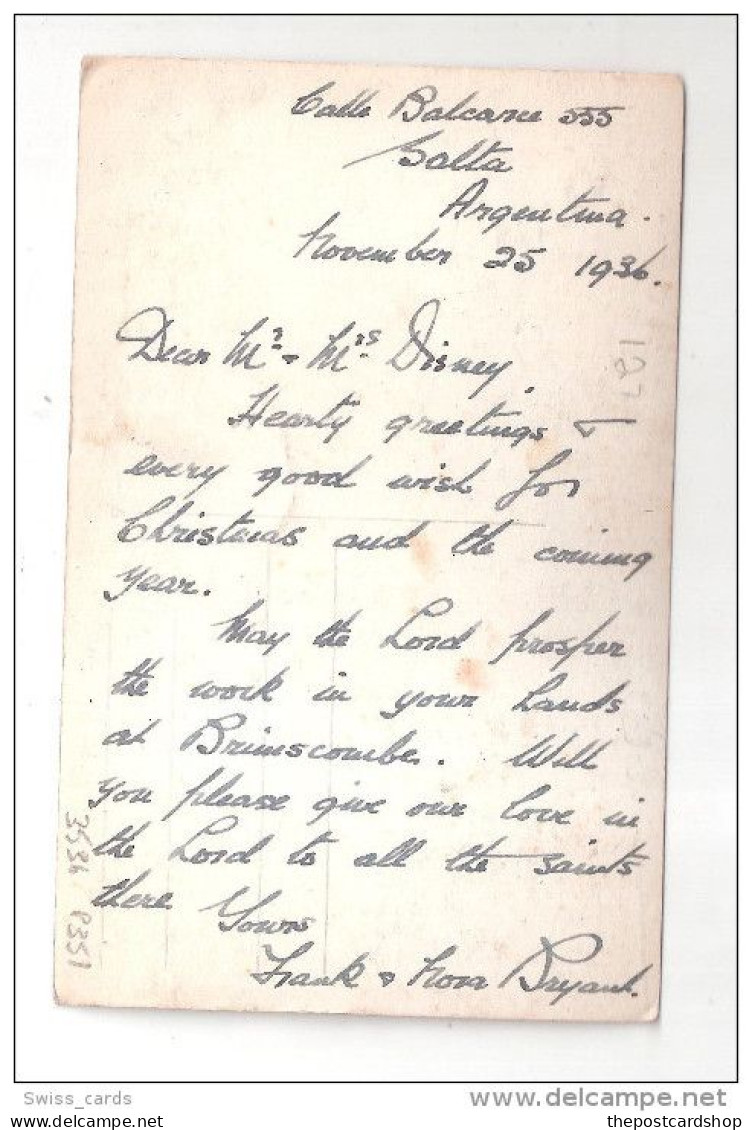 Calle Balcarce 555
Salta
Argentina.
November 25 1936.
Dear Mr & Mrs Disney,
Hearty greetings &
every good wish for
Christmas and the coming
year.
May the Lord prosper
the work in your hands
at Brimscombe. Will
you please give our love in
the Lord to all the saints
there Yours
Frank & Nora Bryant.
1271
3536 8351
Swiss_cards
delcampe.net
thepostcardshop